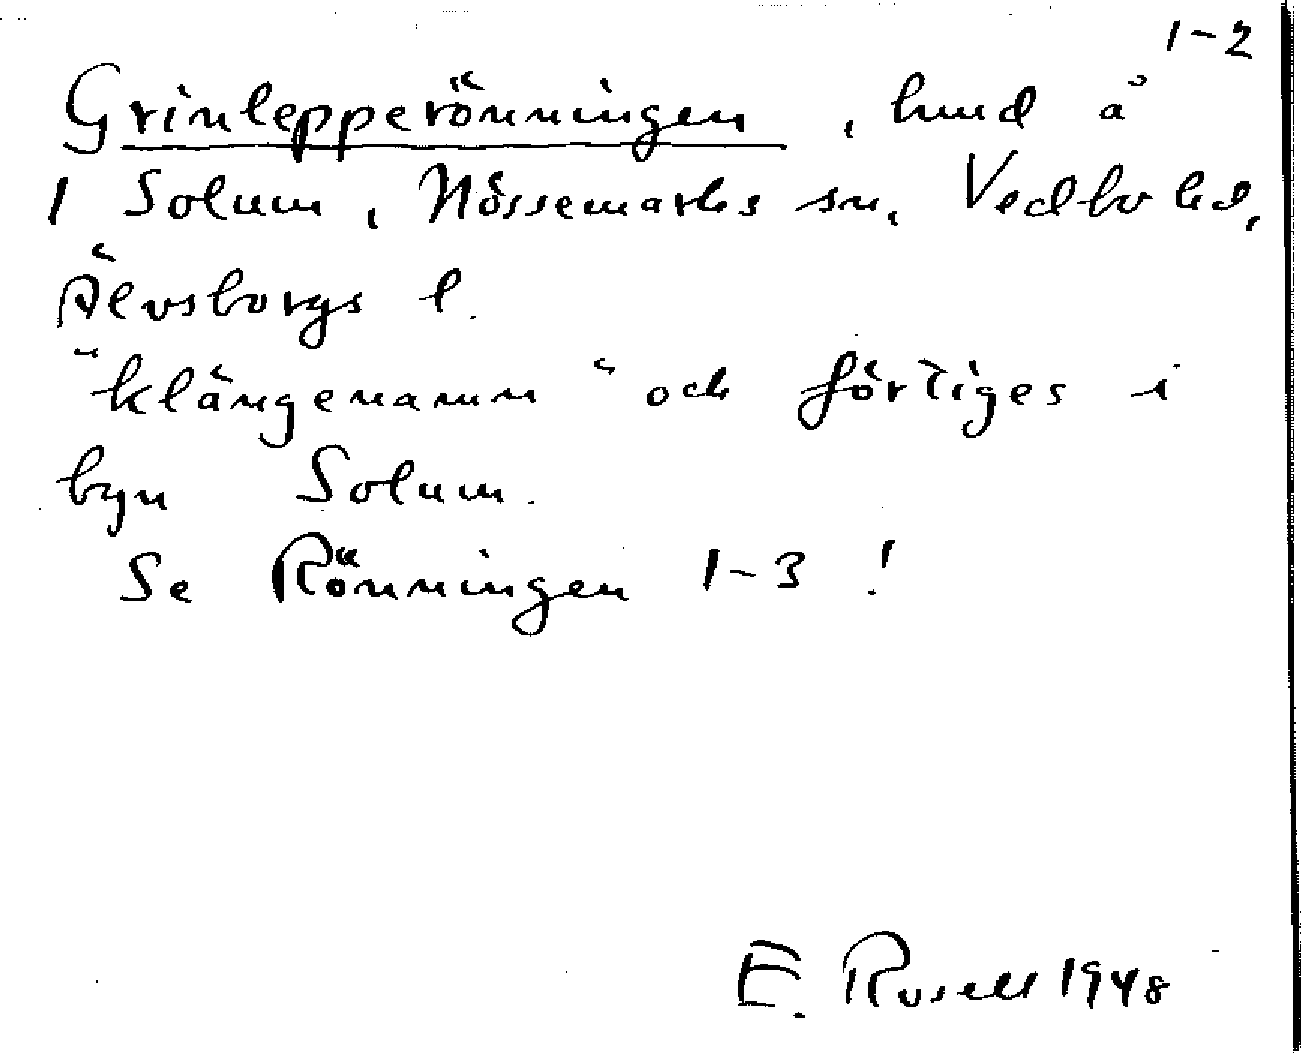 1-2
Grinlepperönningen, hmd å
1 Solum, Nössemarks sn, Vedbo hd,
Älvsborgs l.
"klängenamn" och förtiges i
byn Solum.
Se Rönningen 1-3!
E. Rosell 1948